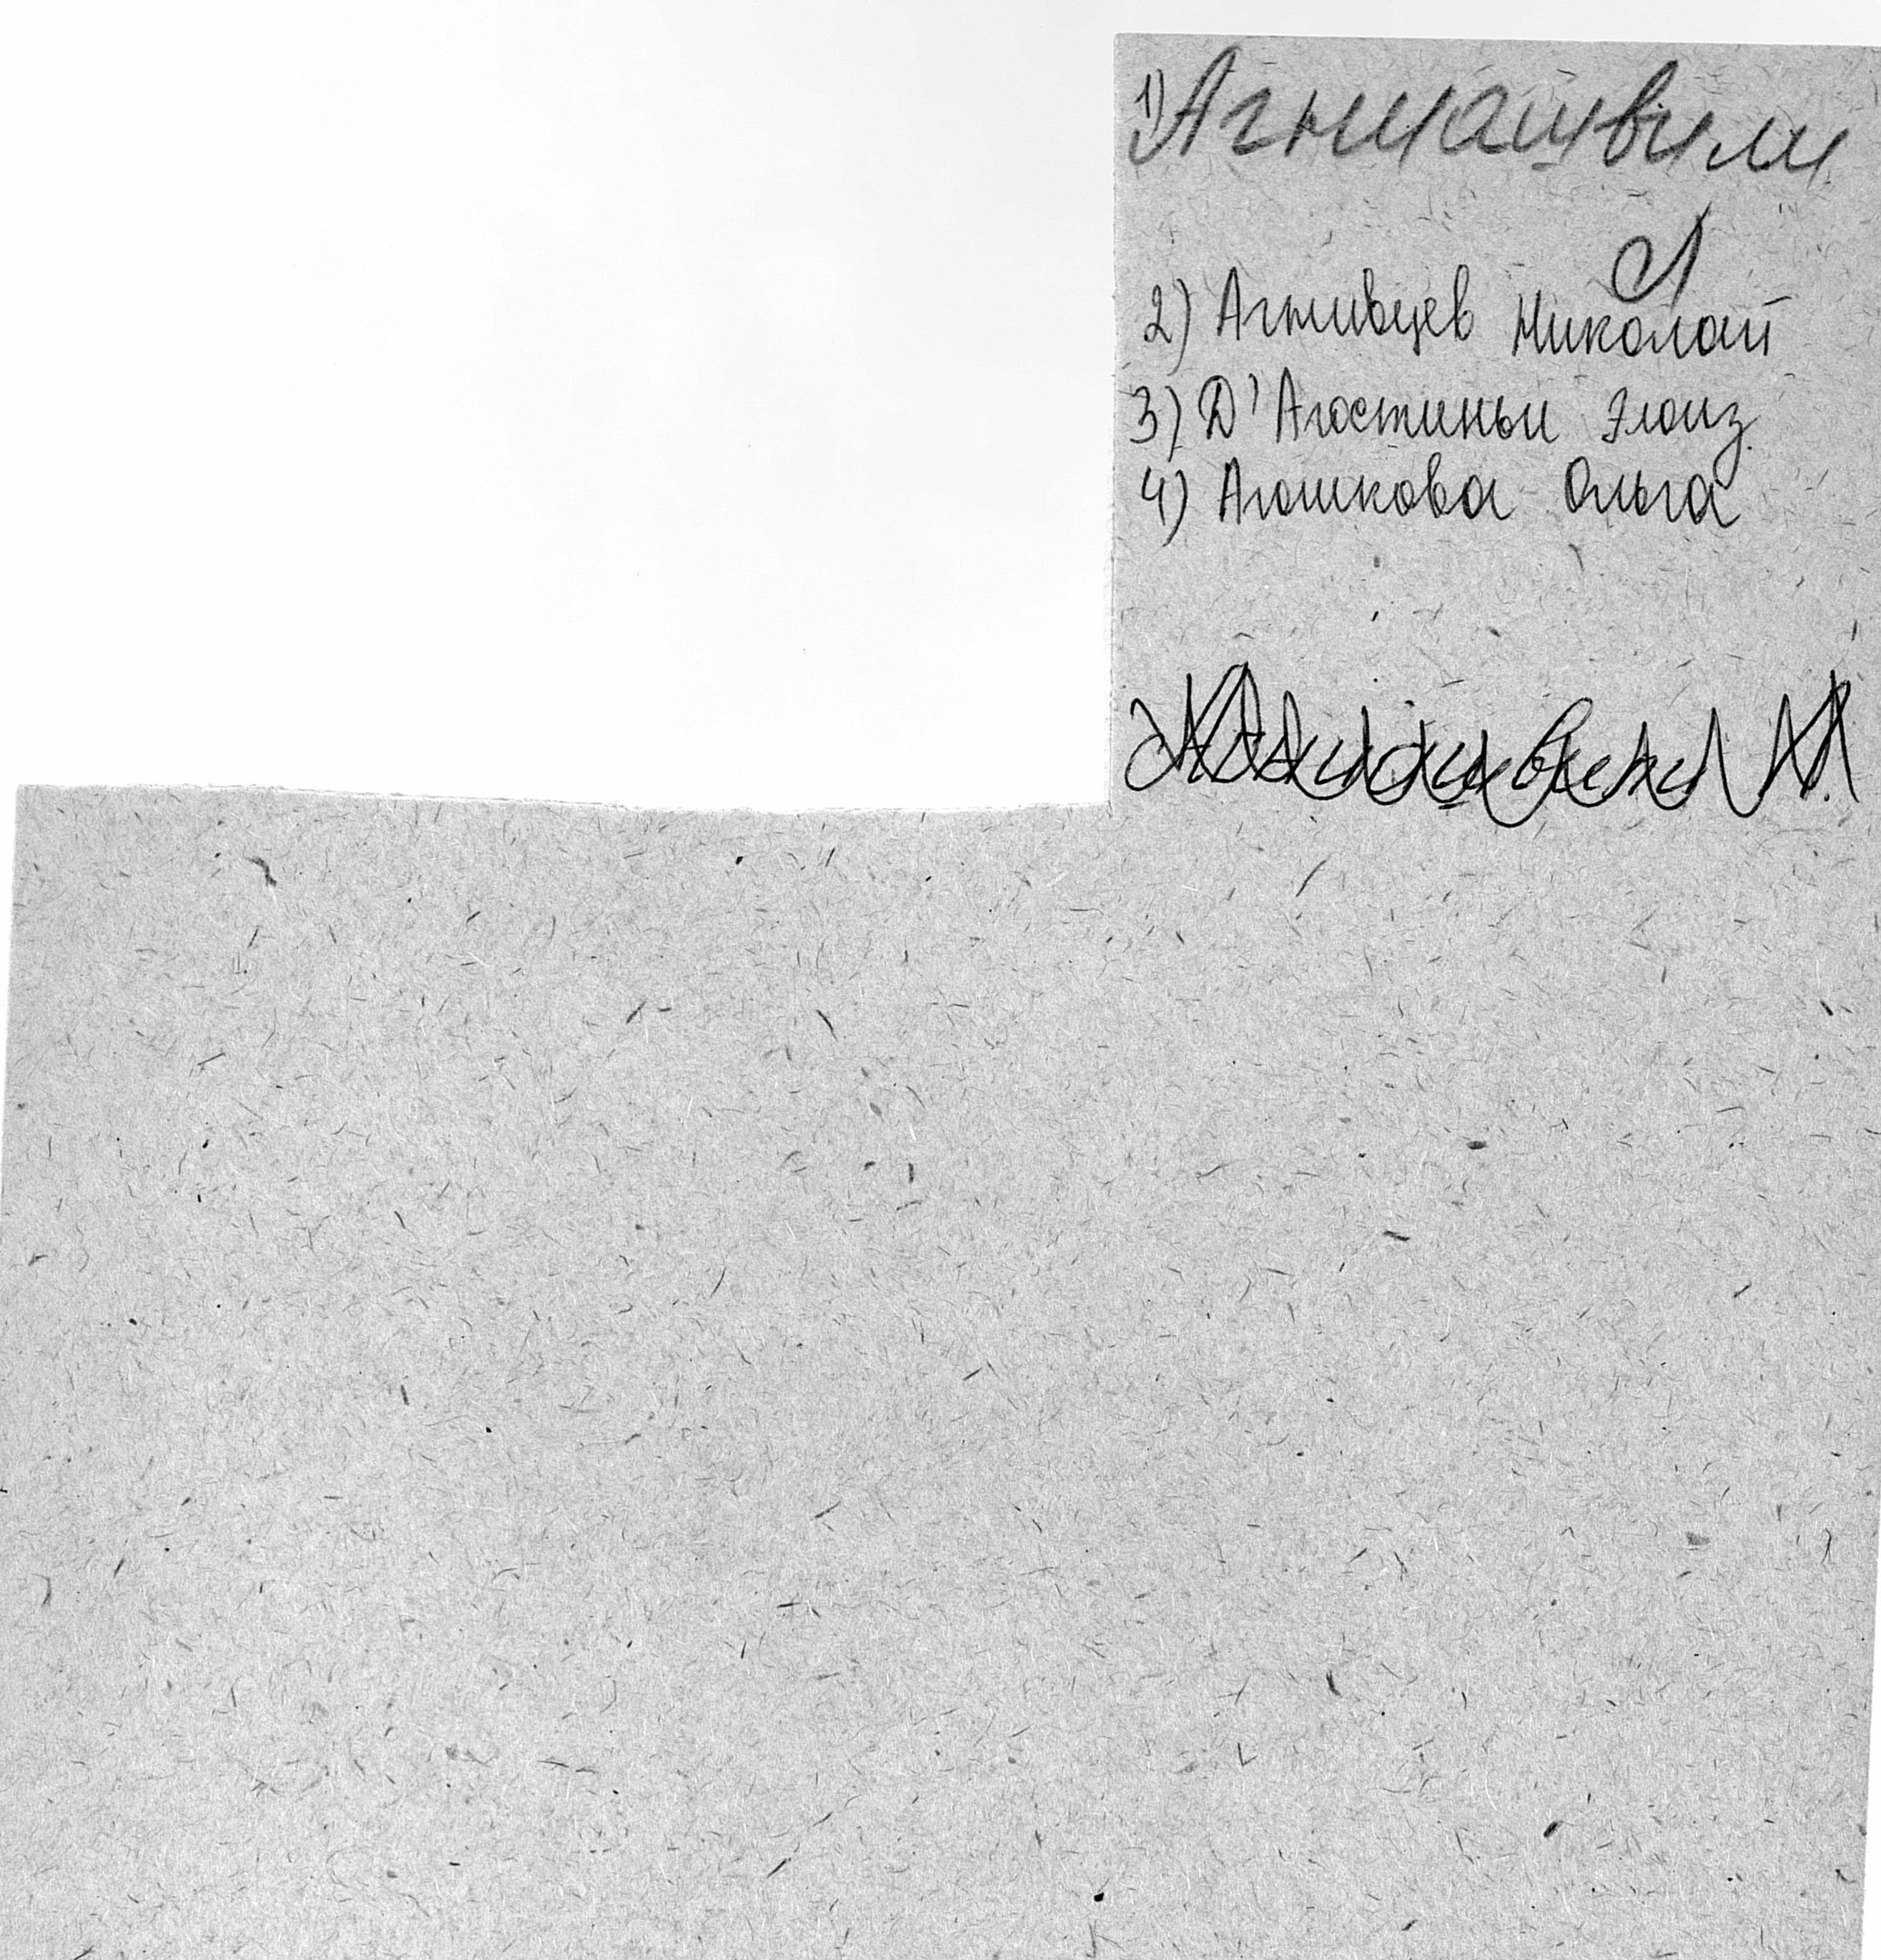 1) Агниашвили
Л
2) Агнивцев Николай
3) Д'Агостиньи Элоиз
4) Агошкова Ольга